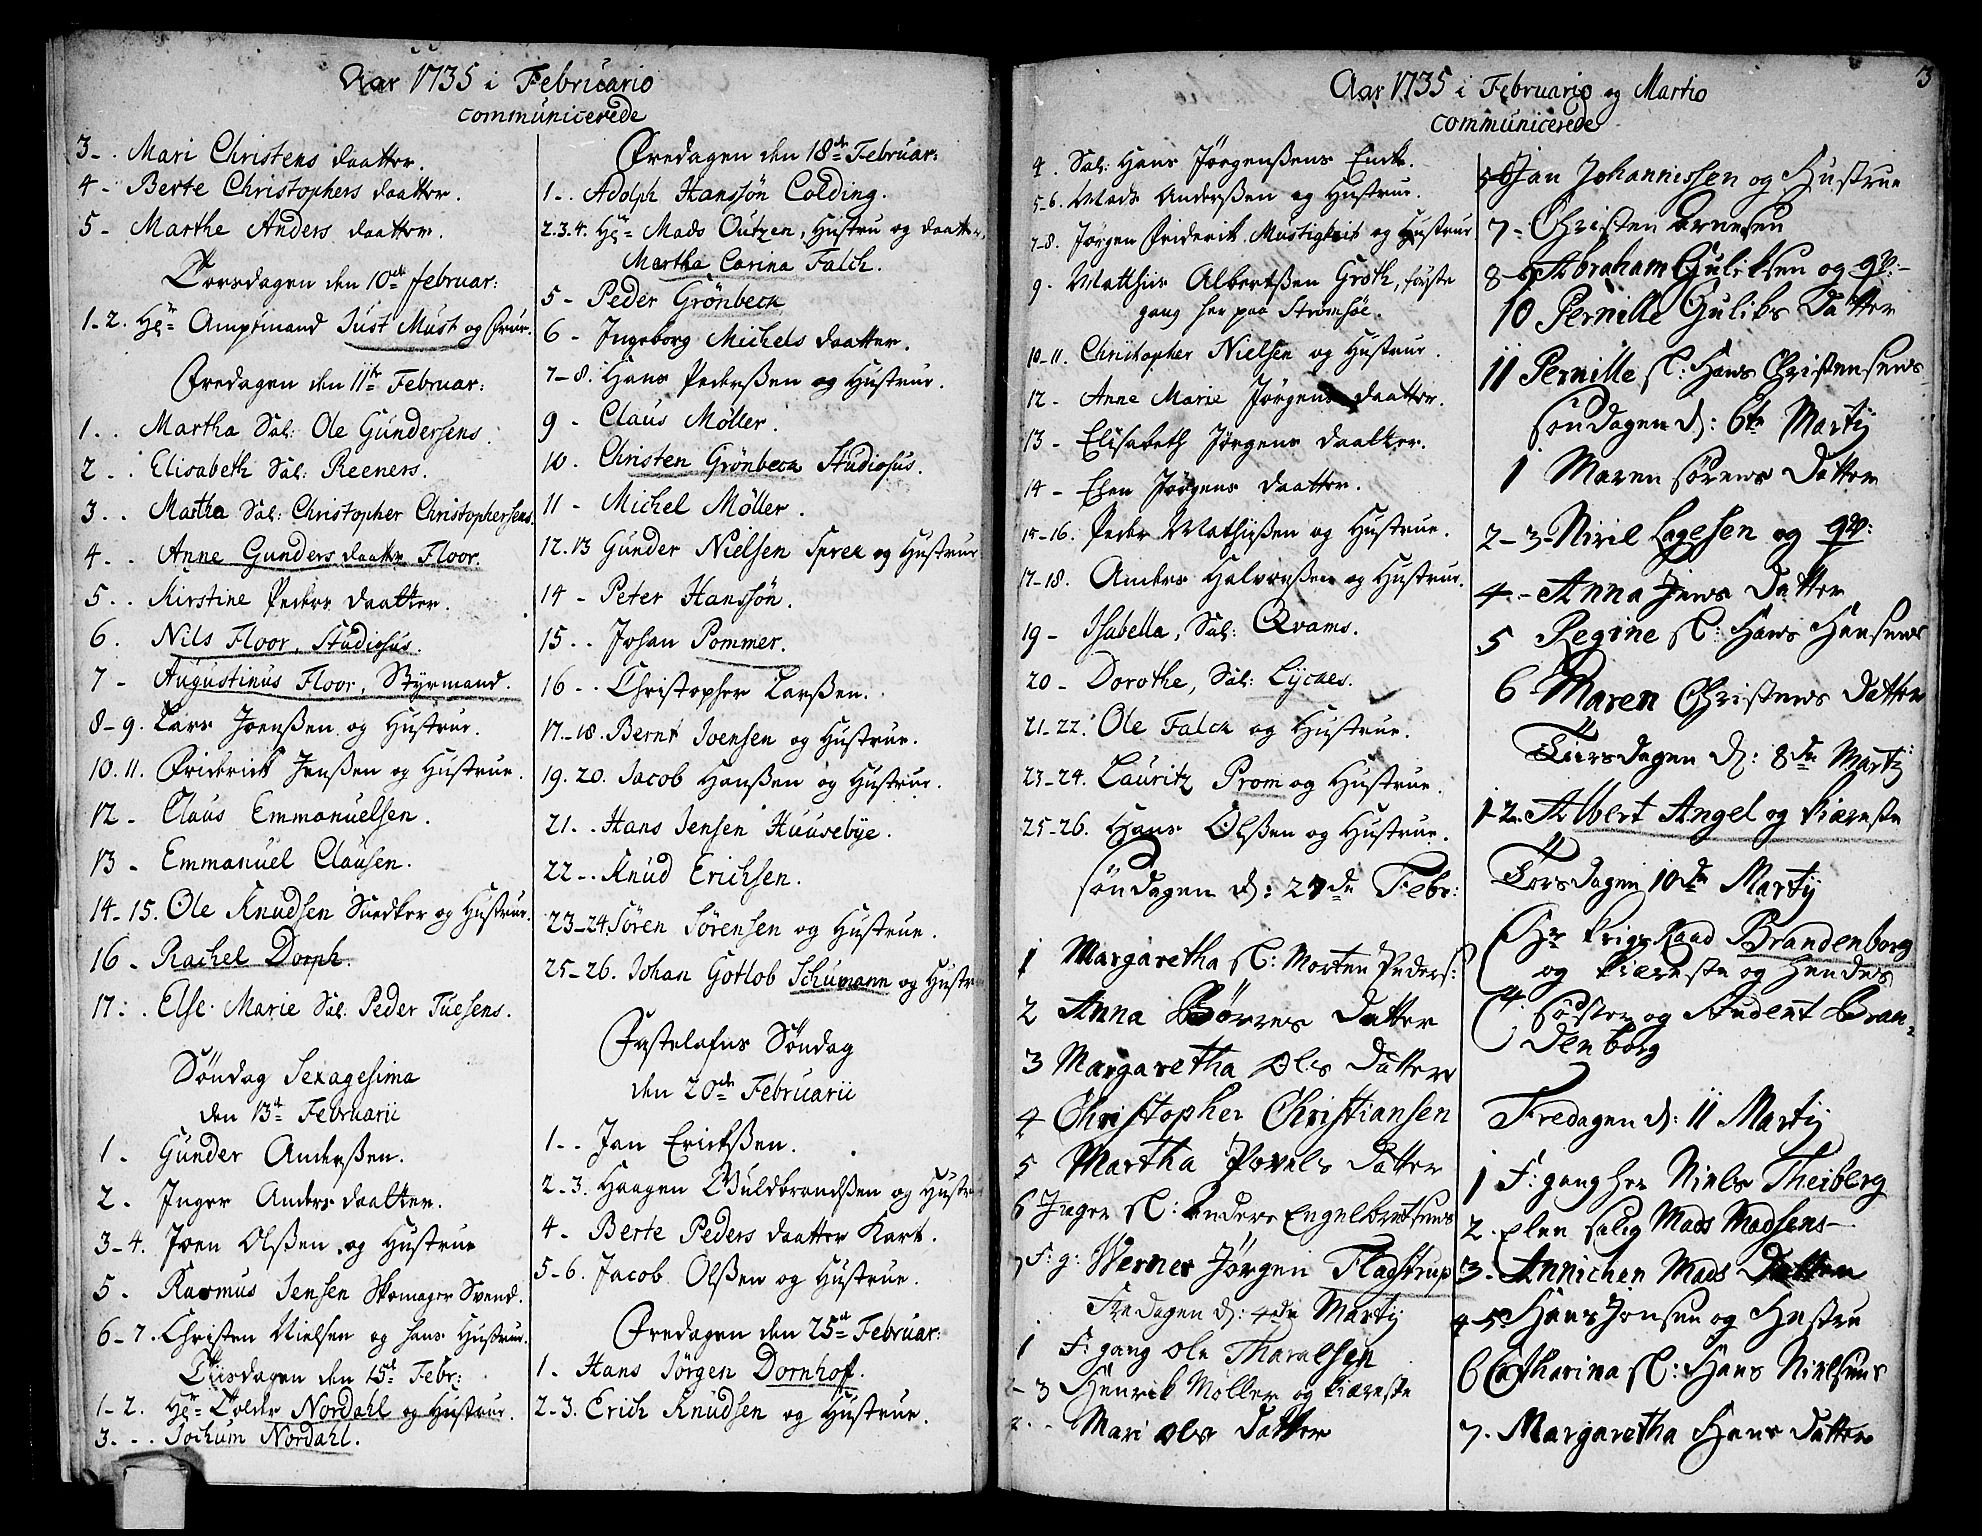 Aar 1735 i Februario
communicerede
3 - . Mari Christens daatter.
4 - Berte Christophers daatter.
5 - Marthe Anders daatter.
Torsdagen den 10de februar:
1-2. Hr Ampmand Just Must og Frue.
Fredagen den 11te Februar:
1 . . Martha Sal: Ole Gundersens
2 . . Elisabeth Sal: Reeners.
3 . . Martha Sal: Christopher Christophersens.
4 . . Anne Gunders daatter Floor.
5 . . Kirstine Peders daatter.
6 . Nils Floor, Studiosus.
7 - Augustinus Floor, Styrmand.
8-9. Lars Joenßen og Hustrue.
10. 11. Friderich Jenßen og Hustrue.
12 - Claus Emmanuelsen.
13 - Emmanuel Clausen.
14-15. Ole Knudsen Snedker og Hustrue.
16 - Rachel Dorph.
17: . Else Marie Sal. Peder Tuesens.
Söndag Sexagesima
den 13de Februarii
1 - Gunder Anderßen.
2 - Inger Anders daatter.
3-4. Joen Olßen og Hustrue
5 - Rasmus Jensen Skomager Svend.
6-7. Christen Nielsen og hans Hustrue.
Tiisdagen den 15de Febr:
1-2. Hr Colder Nordahl og Hustrue.
3 - . . Jochum Nordahl.
Fredagen den 18de Februar:
1 - . Adolph Hanssön Colding.
2.3.4. Hr Mads Outzen, Hustru og daatter,
Martha Carina Falch.
5 - Peder Grönbeck
6 - Ingeborg Michels daatter.
7-8. Hans Pederßen og Hustrue.
9 - Claus Møller.
10. Christen Grönbeck Studiosus.
11 - Michel Møller.
12.13 Gunder Nielsen Sprek og Hustrue
14 - Peter Hanssön.
15 . . Johan Pommer.
16 - . Christopher Larßen.
17-18. Bernt Joensen og Hustrue.
19. 20. Jacob Hanßen og Hustrue.
21 . . Hans Jensen Huusebye.
22 - . Knud Erichsen.
23-24. Sören Sörensen og Hustrue.
25-26. Johan Gotlob Schumann og Hustrue
Fastelafns Söndag
den 20de Februarii
1 - . Jan Erichßen.
2-3. Haagen Guldbrandßen og Hustrue
4 - Berte Peders daatter Kart.
5-6. Jacob Olßen og Hustrue.
Fredagen den 25de Februar:
1 - Hans Jörgen Dornhof.
2-3. Erich Knudsen og Hustrue.
3
Aar 1735 i Februario og Martio
communicerede
4. Sal: Hans Jörgenßens Encke.
5-6. Mads Anderßen og Hustrue.
7-8. Jörgen Friderik Mustigheit og Hustrue
9. Matthias Albertßen Groth, förste
gang her paa Strömsöe.
10-11. Christopher Nielsen og Hustrue.
12 - Anne Marie Jörgens daatter.
13 - Elisabeth Jörgens daatter.
14 - Elen Jörgens daatter.
15-16. Peder Mathißen og Hustrue.
17-18. Anders Halvorßen og Hustrue.
19 - Isabella, Sal: Qvams.
20 - Dorothe, Sal: Lycaes.
21-22. Ole Falck og Hustrue.
23-24. Lauritz Prom og Hustrue.
25-26. Hans Olßen og Hustrue.
söndagen d: 27de Febr:
1 Margaretha Sl: Morten Peders:
2 Anna Börres Datter
3 Margaretha Ols Datter
4 Christopher Christiansen
5 Martha Povels Datter
6 Inger Sl: Anders Engelbretsens
7 F: g: Werner Jörgen Fladstrup
Fredagen d: 4de Martij
1 F: gang Ole Tharalsen
2-3 Henrik Møller og kiæreste
Mari Ols Datter
5-6 Jan Johannissen og Hustrue
7 - Christen Arnesen
8-9 Abraham Guliksen og qv:
10 Pernille Guliks Datter
11 Pernille Sl: Hans Christensens
söndagen d: 6te Martij
1 Maren sörens Datter
2-3 - Niril Lagesen og qv:
4 - Anna Jens Datter
5 Regine Sl: Hans Hansens
6 Maren Christens Datter
Tiirsdagen d: 8de Martij
1-2. Albert Angel og kiæreste
Torsdagen 10de Martij
Hr krigs Raad Brandenborg
og kiæreste og hendes
4. söster og Student Bran-
denborg
Fredagen d: 11 Martij
1 F: gang her Niels Theiberg
2. Elen salig Mads Madsens
3 - Annichen Mads Datter
4-5 Hans Jonsen og Hustru
6 Catharina Sl: Hans Nielsens
7. Margaretha Hans Datter